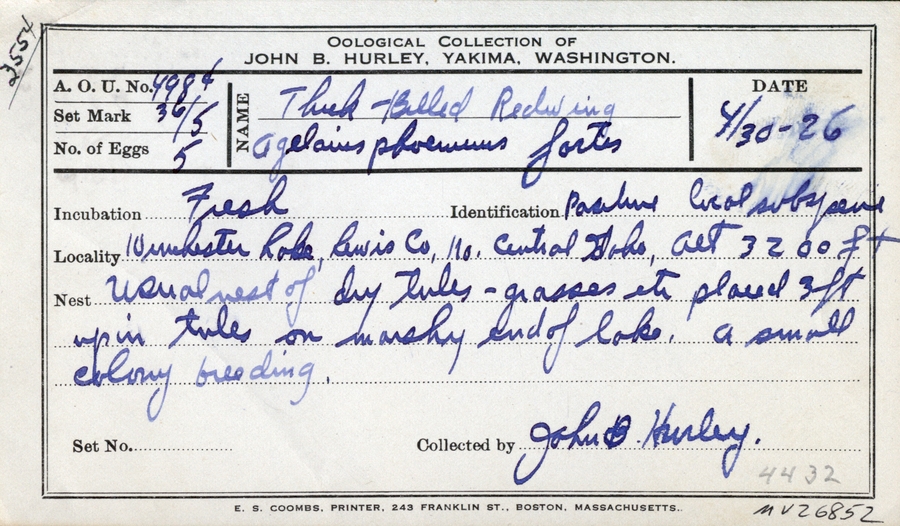 2554
OOLOGICAL COLLECTION OF
JOHN B. HURLEY, YAKIMA, WASHINGTON.
A. O. U. No. 498d
Set Mark 36/5
No. of Eggs 5
NAME
Thick-Billed Redwing
Agelaius phoenicus fortis
DATE
4/30-26
Incubation Fresh Identification Positive local subspecie
Locality Winchester Lake, Lewis Co, No. Central Idaho, Alt 3200 ft
Nest Usual nest of dry tules - grasses etc placed 3 ft
up in tules on marshy end of lake. A small
colony breeding.
Set No.
Collected by John B. Hurley.
4432
E. S. COOMBS, PRINTER, 243 FRANKLIN ST., BOSTON, MASSACHUSETTS.
MV26852